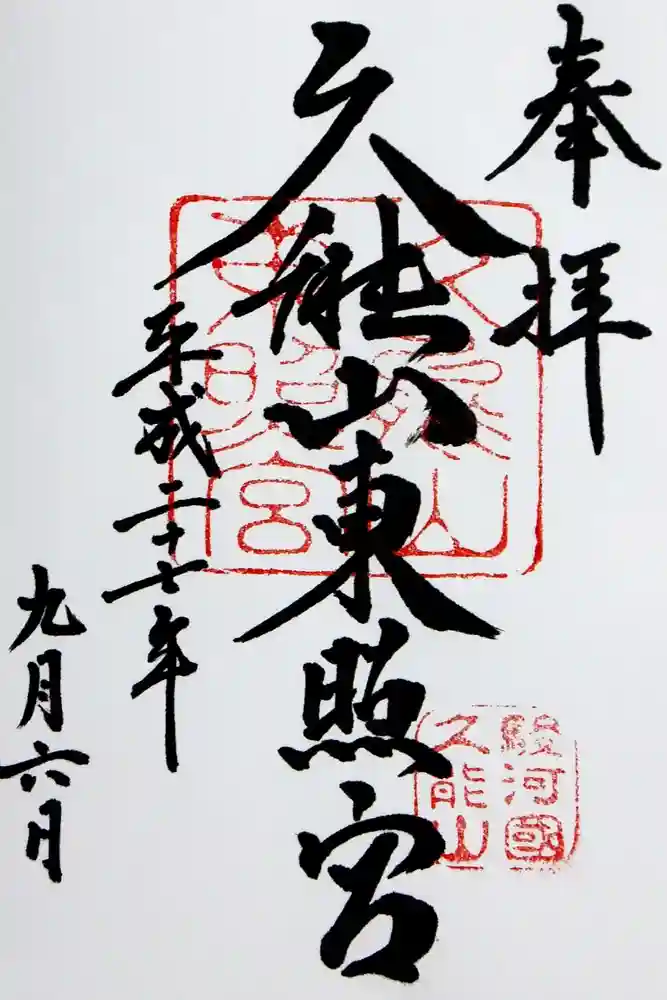 奉拝
駿河國
久能山
久能山東照宮
久能山
東照宮
平成二十七年
九月六日